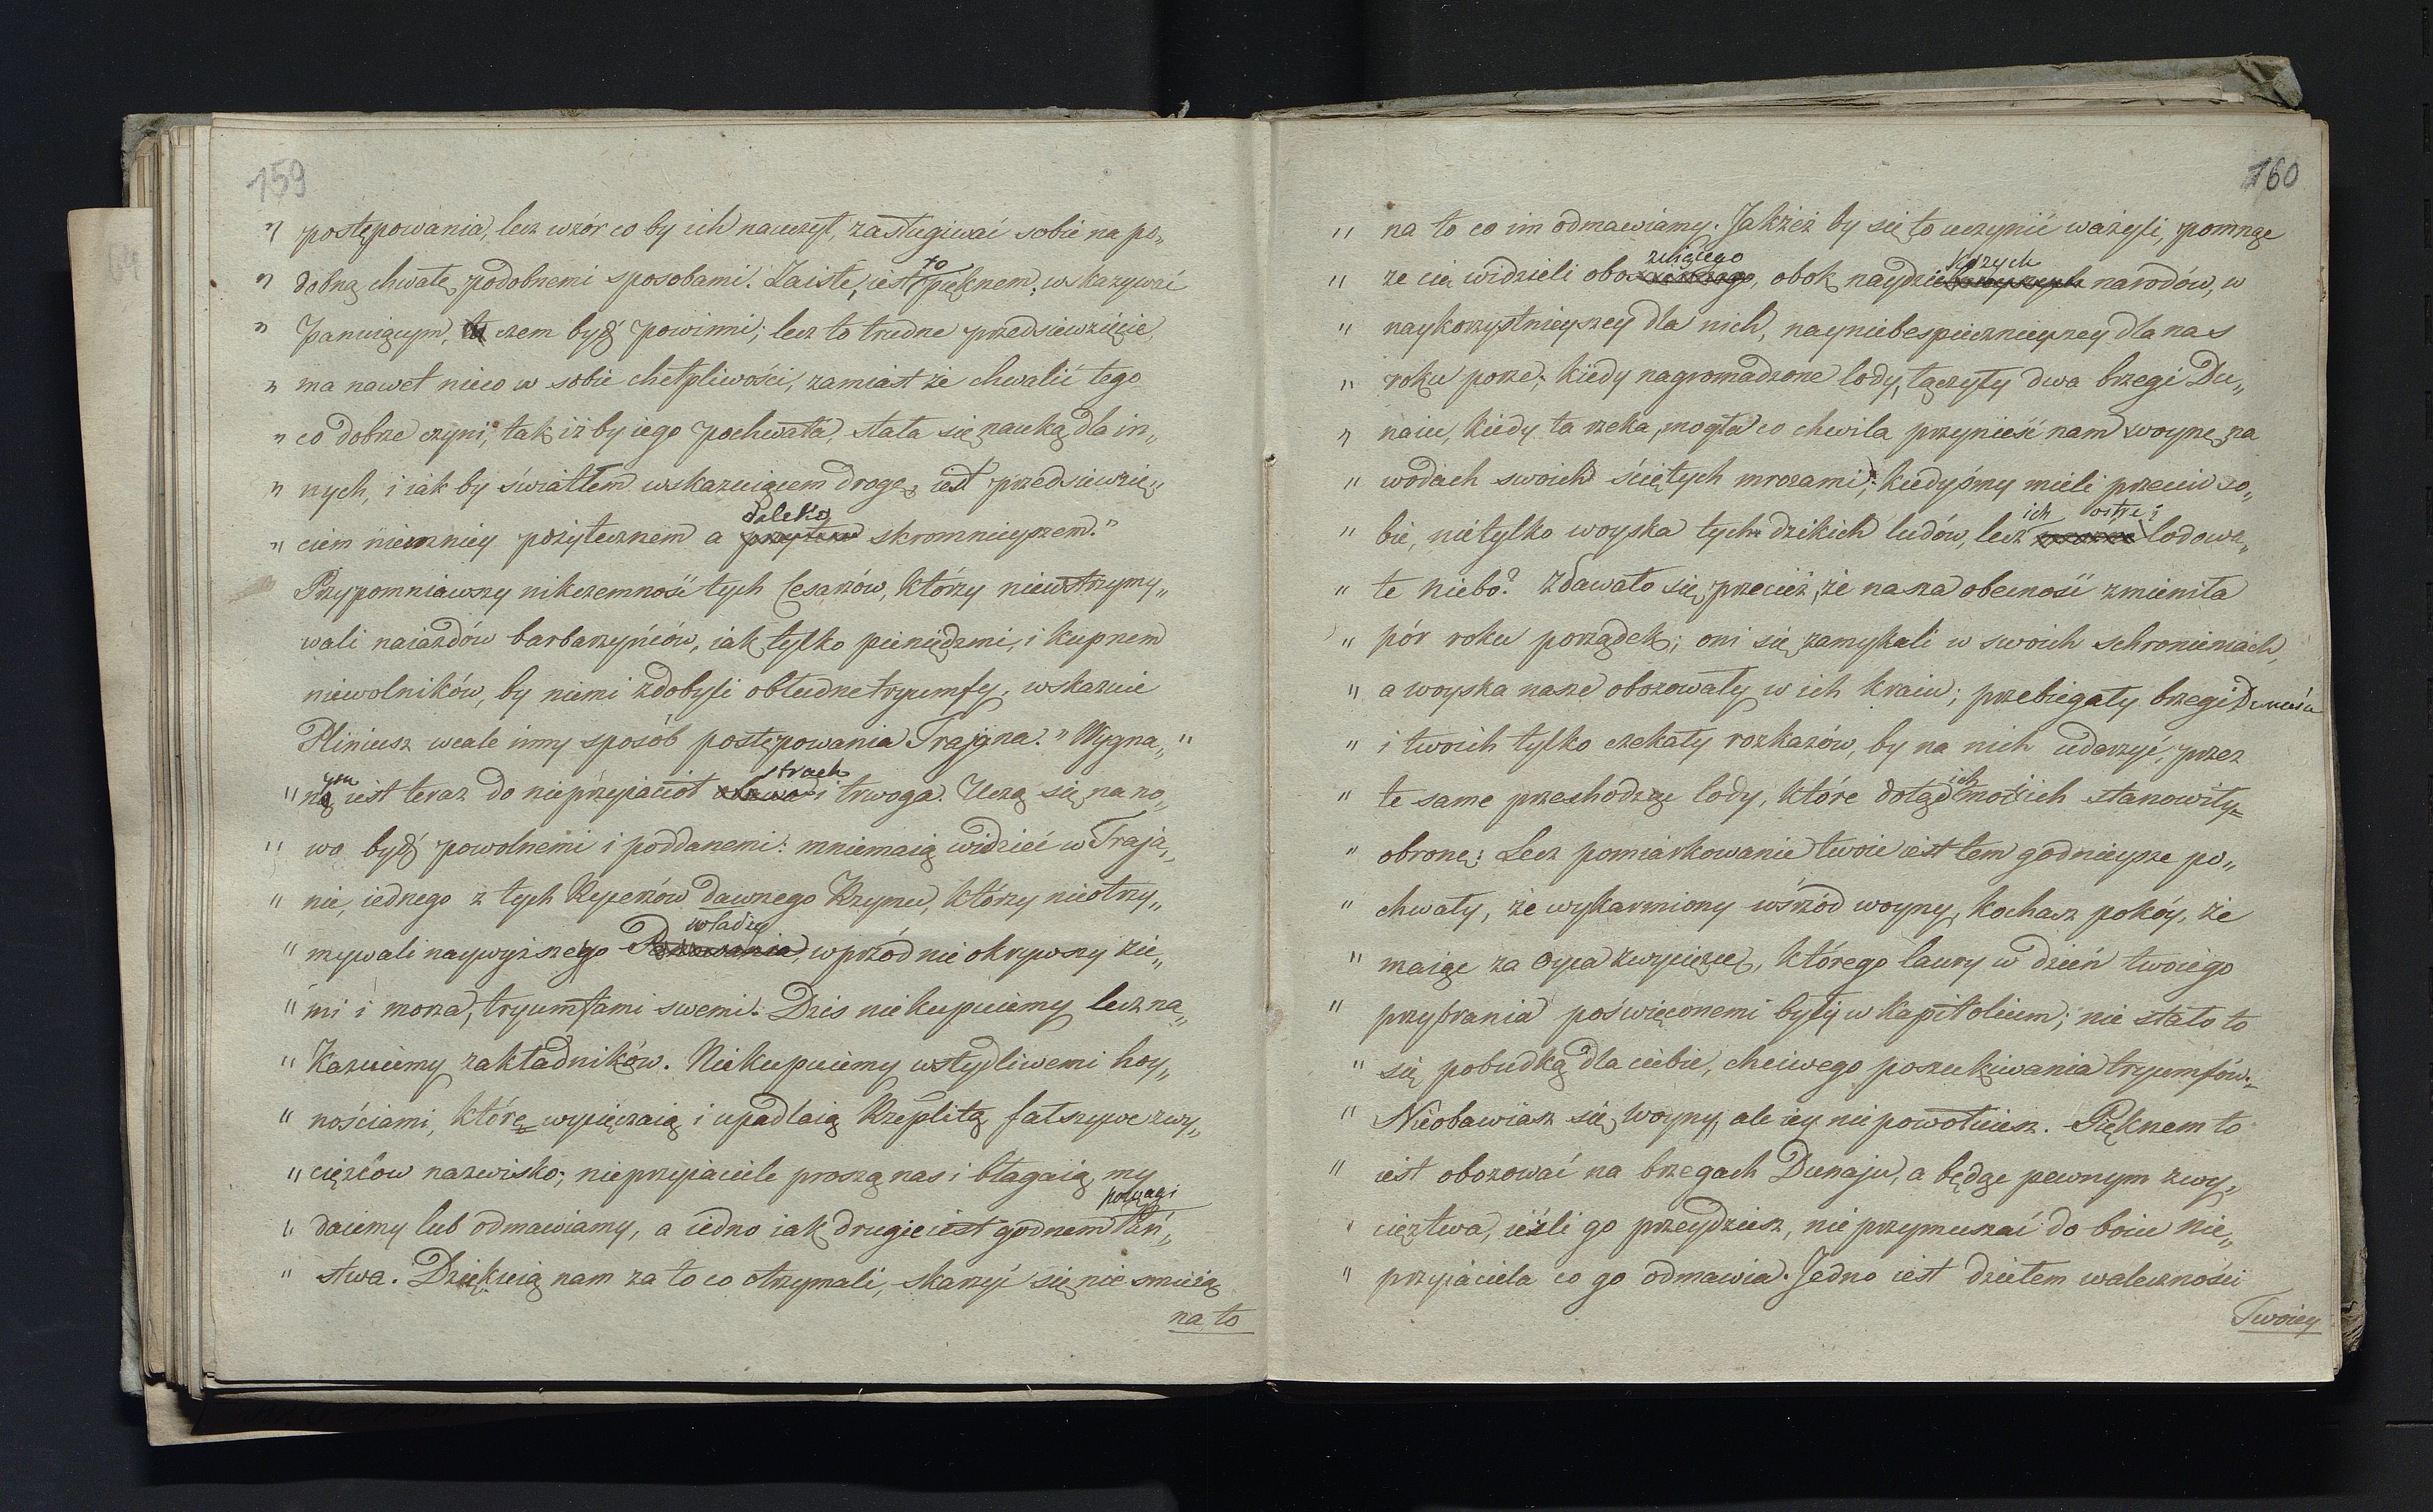 159
„ postępowania, lecz wzór co by ich nauczył, zasługiwać sobie na po„
„ dobną chwałę podobnemi sposobami. Zaiste, iest to pięknem, wskazywać
„ Panuiącym, czem bydź powinni; lecz to trudne przedsiewzięcie,
„ ma nawet nieco w sobie chełpliwości, zamiast że chwalić tego
„ co dobrze czyni; tak iż by iego pochwała, stała się nauką dla in„
„ nych, i iak by światłem wskazuiącem drogę, iest przedsiewzię„
„ ciem niemniey pożytecznem a daleko skromnieyszem."
Przypomniawszy nikczemność tych Cesarzów, którzy niewstrzymy„
wali naiazdów barbarzyńców, iak tylko pieniędzmi, i kupnem
niewolników, by niemi zdobyli obłudne tryumfy; wskazuie
Pliniusz wcale inny sposób postępowania Trajana. "Wygna„
" nym iest teraz do nieprzyiaciół strach i trwoga. Uczą się na no„
" wo bydź powolnemi i poddanemi: mniemaią widzieć w Traja„
" nie, iednego z tych Rycerzów dawnego Rzymu, którzy nieotrzy„
" mywali naywyższey władzy, wprzód nie okrywszy zie„
" mi i morza, tryumfami swemi. Dzis niekupuiemy lecz na„
" kazuiemy zakładników. Niekupuiemy wstydliwemi hoy„
" nościami, które wycięczaią i upadlaią Rzeplitą fałszywe zwy„
" cięzców nazwisko; nieprzyiaciele proszą nas i błagaią, my
" daiemy lub odmawiamy, a iedno iak drugie iest godnem potęgi Pań„
" stwa. Dziękuią nam za to co otrzymali, skarzyć się nie smieią
na to
160
" na to co im odmawiamy. Jakżeż by się to uczynić ważyli, pomnąc
" że cię widzieli obozuiącego, obok naydzikszych narodów, w
" naykorzystnieyszey dla nich, nayniebespiecznieyszey dla nas
" roku porze; kiedy nagromadzone lody, łączyły dwa brzegi Du„
" naiu, kiedy ta rzeka, mogła co chwila przynieść nam woynę na
" wodach swoich ściętych mrozami; kiedyśmy mieli przeciw so„
" bie, nietylko woyska tych dzikich ludów, lecz ich ostre i lodowa„
" te niebo? Zdawało się przecież, że nasza obecność zmieniła
" pór roku porządek; oni się zamykali w swoich schronieniach,
" a woyska nasze obozowały w ich kraiu; przebiegały brzegi Dunaiu
" i twoich tylko czekały rozkazów, by na nich udarzyć, przez
" te same przechodząc lody, które dotąd ich stanowiły
" obronę. Lecz pomiarkowanie twoie iest tem godnieysze po„
" chwały, że wykarmiony wśrzód woyny, kochasz pokóy, że
" maiąc za Oyca zwycięzcę, którego laury w dzień twoiego
" przybrania poświęconemi były w Kapitolium; nie stało to
" się pobudką dla ciebie, chciwego poszukiwania tryumfów.
" Nieobawiasz się woyny, ale iey niepowołuiesz. Pięknem to
" iest obozować na brzegach Dunaju, a będąc pewnym zwy„
" cięztwa, ieśli go przeydziesz, nie przymuszać do boiu nie„
" przyiaciela co go odmawia. Jedno iest dziełem waleczności
Twoiey